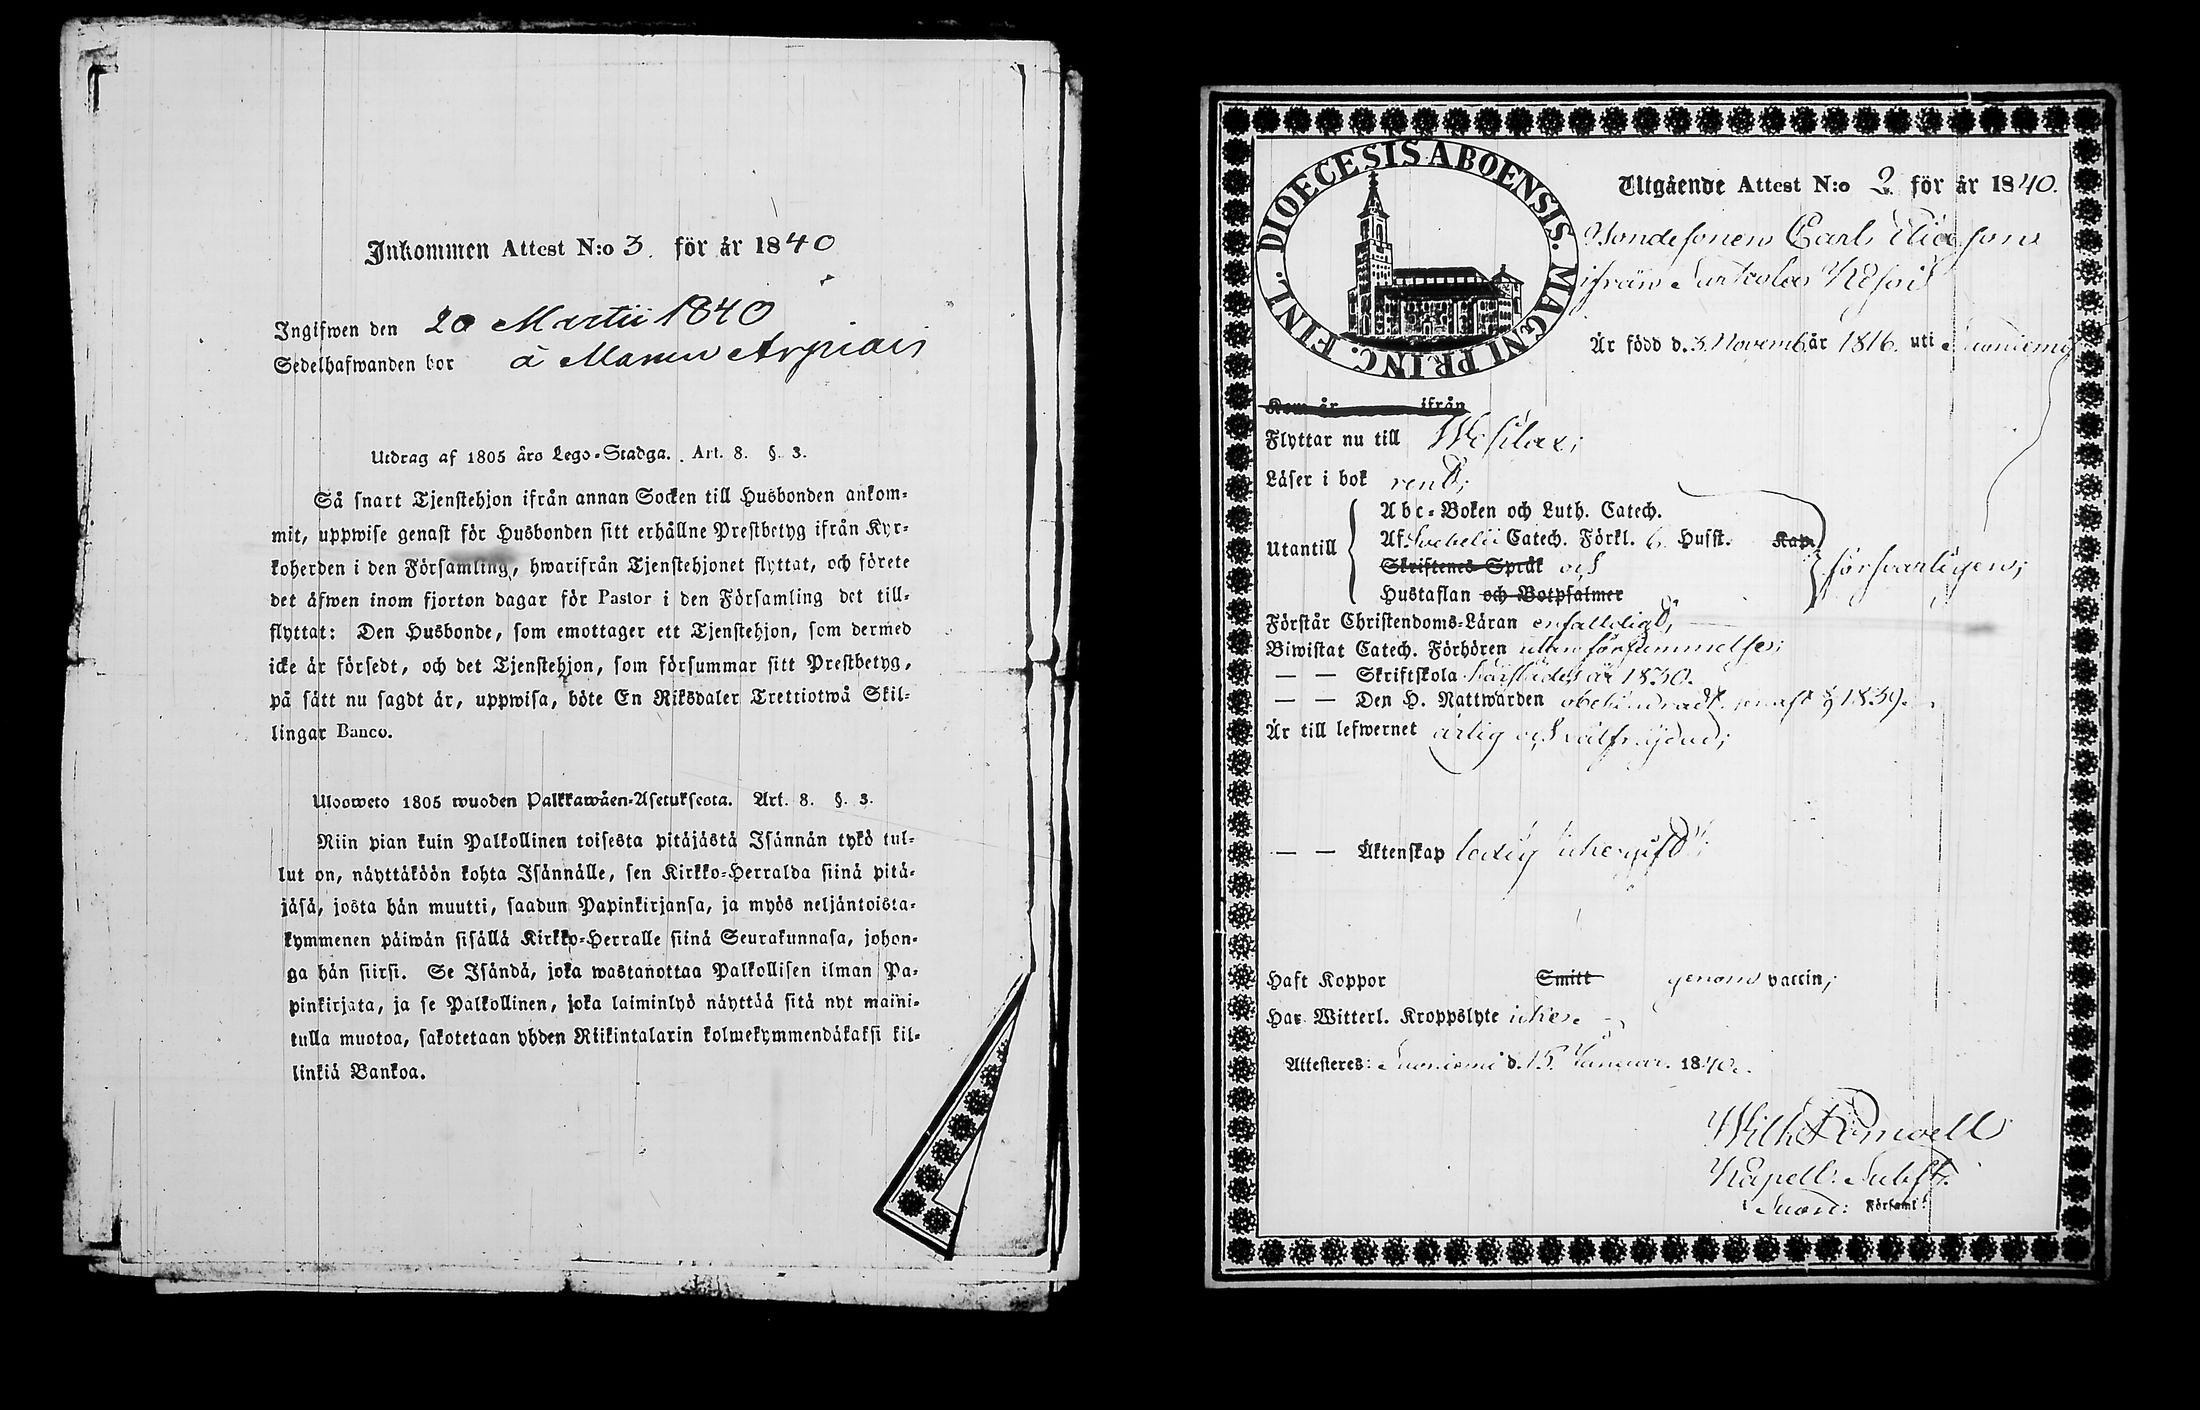 Inkommen Attest N:o 3. för år 1840
Ingifwen den 20 Martii 1840
Sedelhafwanden bor å Mamu Arpiais
Utdrag af 1805 års Lego-Stadga. Art. 8. §. 3.
Så snart Tjenstehjon ifrån annan Socken till Husbonden ankom-
mit, uppwise genast för Husbonden sitt erhållne Prestbetyg ifrån Kyr-
koherden i den Församling, hwarifrån Tjenstehjonet flyttat, och förete
det äfwen inom fjorton dagar för Pastor i den Församling det till-
flyttat: Den Husbonde, som emottager ett Tjenstehjon, som dermed
icke är försedt, och det Tjenstehjon, som försummar sitt Prestbetyg,
på sätt nu sagdt är, uppwisa, böte En Riksdaler Trettiotwå Skil-
lingar Banco.
Ulosweto 1805 wuoden Palkkawäen-Asetuksesta. Art. 8. §. 3.
Niin pian kuin Palkollinen toisesta pitäjästä Isännän tykö tul-
lut on, näyttäköön kohta Isännälle, sen Kirkko-Herralda siinä pitä-
jäsä, josta hän muutti, saadun Papinkirjansa, ja myös neljäntoista-
kymmenen päiwän sisällä Kirkko-Herralle siinä Seurakunnasa, johon-
ga hän siirsi. Se Isändä, joka wastanottaa Palkollisen ilman Pa-
pinkirjata, ja se Palkollinen, joka laiminlyö näyttää sitä nyt maini-
tulla muotoa, sakotetaan yhden Riikintalarin kolmekymmendäkaksi kil-
linkiä Bankoa.
DIOECESIS ABOENSIS. MAGNI PRINC. FINL.
Utgående Attest N:o 2 för år 1840.
Bondesonen Carl
ifrån
Är född d. 3. Novemb. år 1816. uti Suoniemi
Kom år ifrån
Flyttar nu till Wesilax;
Läser i bok rent;
Utantill
Abc-Boken och Luth. Catech.
Af Svebelii Catech. Förkl. 6 Husst. Kap.
Skriftenes Språk och
Hustaflan och Botpsalmer
försvarligen;
Förstår Christendoms-Läran enfalldigt;
Biwistat Catech. Förhören utan försummelse;
— — Skriftskola år 1830.
— — Den H. Nattwarden obehindradt, senast 1839.
Är till lefwernet ärlig och välfrejdad;
— — Äktenskap ledig
Haft Koppor Smitt genom vaccin;
Har Witterl. Kroppslyte icke.
Attesteres: Suoniemi d. 15. Januar. 1840.
Kapell: Subst.
i Suon: Förfaml: